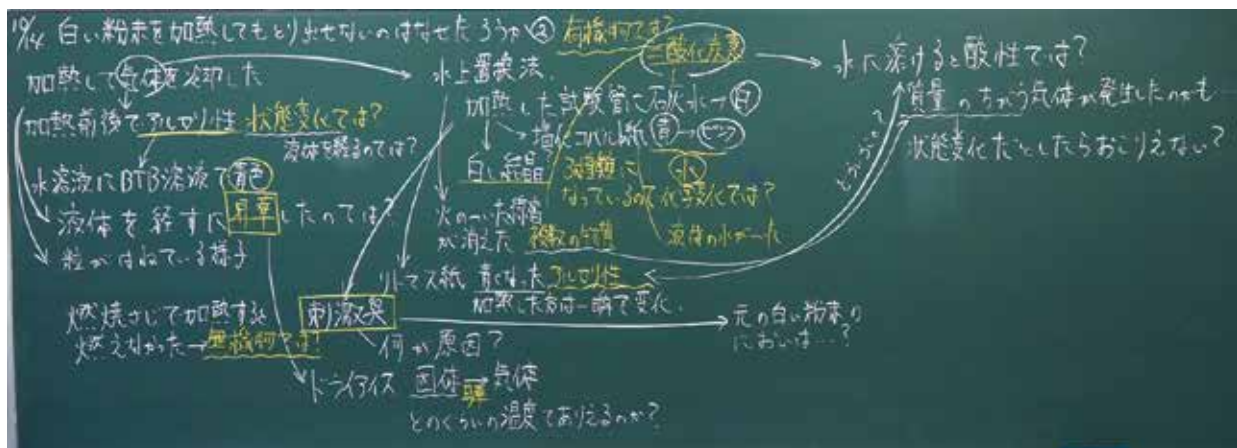 10/14 白い粉末を加熱してもとり出せないのはなぜだろうか② 有機物では?
加熱して気体を冷却した
加熱前後でアルカリ性 状態変化では?
液体を経るのでは?
水溶液にBTB溶液で青色
液体を経ずに昇華したのでは?
粒がはねている様子
燃焼さじで加熱すると
燃えなかった→無機物では?
水上置換法
二酸化炭素
加熱した試験管に石灰水→白
塩化コバルト紙 青→ピンク
白い結晶
3種類に
なっているので化学変化では?
水
液体の水が
火のついた線香
が消えた 複数の物質
リトマス紙 青くなった アルカリ性
加熱した方は一瞬で変化.
刺激臭
何が原因?
ドライアイス 固体→気体
昇華
どのくらいの温度でありえるのか?
水に溶けると酸性では?
質量のちがう気体が発生したのかも
状態変化だとしたらおこりえない?
どういうこと?
元の白い粉末の
においは…?